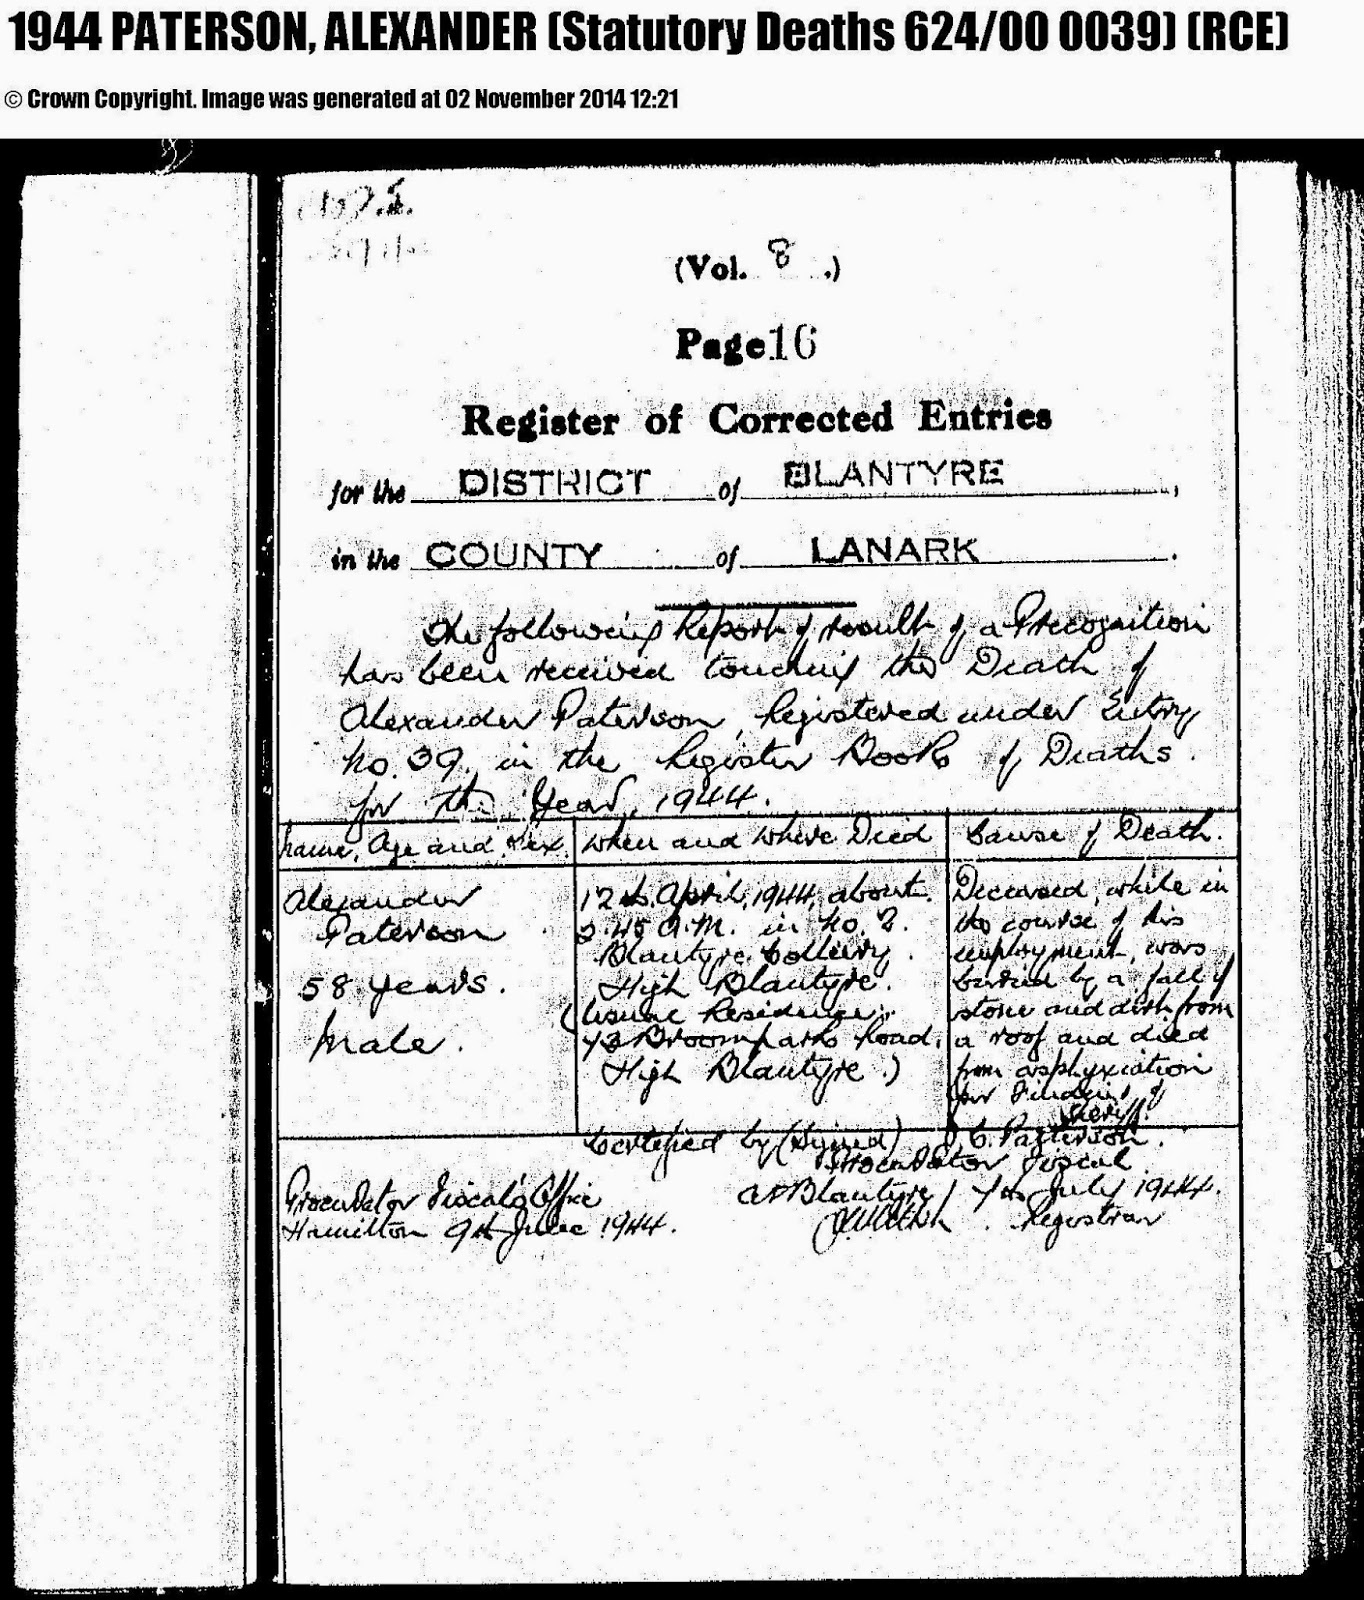 1944 PATERSON, ALEXANDER (Statutory Deaths 624/00 0039) (RCE)
© Crown Copyright. Image was generated at 02 November 2014 12:21
(Vol. 8 .)
Page 16
Register of Corrected Entries
for the DISTRICT of BLANTYRE,
in the COUNTY of LANARK.
The following Report of result of a Precognition
has been received touching the Death of
Alexander Paterson, Registered under Entry
No. 39 in the Register Book of Deaths
for the Year, 1944.
Name, Age and Sex. When and Where Died Cause of Death.
Alexander
Paterson
58 years.
Male.
12th April, 1944, about
.45 A.M. in No. 2.
Blantyre Colliery
High Blantyre.
(Usual Residence:
Broompark Road,
High Blantyre.)
Deceased, while in
the course of his
employment, was
buried by a fall of
stone and dirt from
a roof and died
from asphyxiation
per Finding of
Sheriff.
Certified by (Signed) C. Patterson.
Procurator Fiscal
Procurator Fiscal's Office
Hamilton 9th June 1944.
At Blantyre July 1944.
Registrar